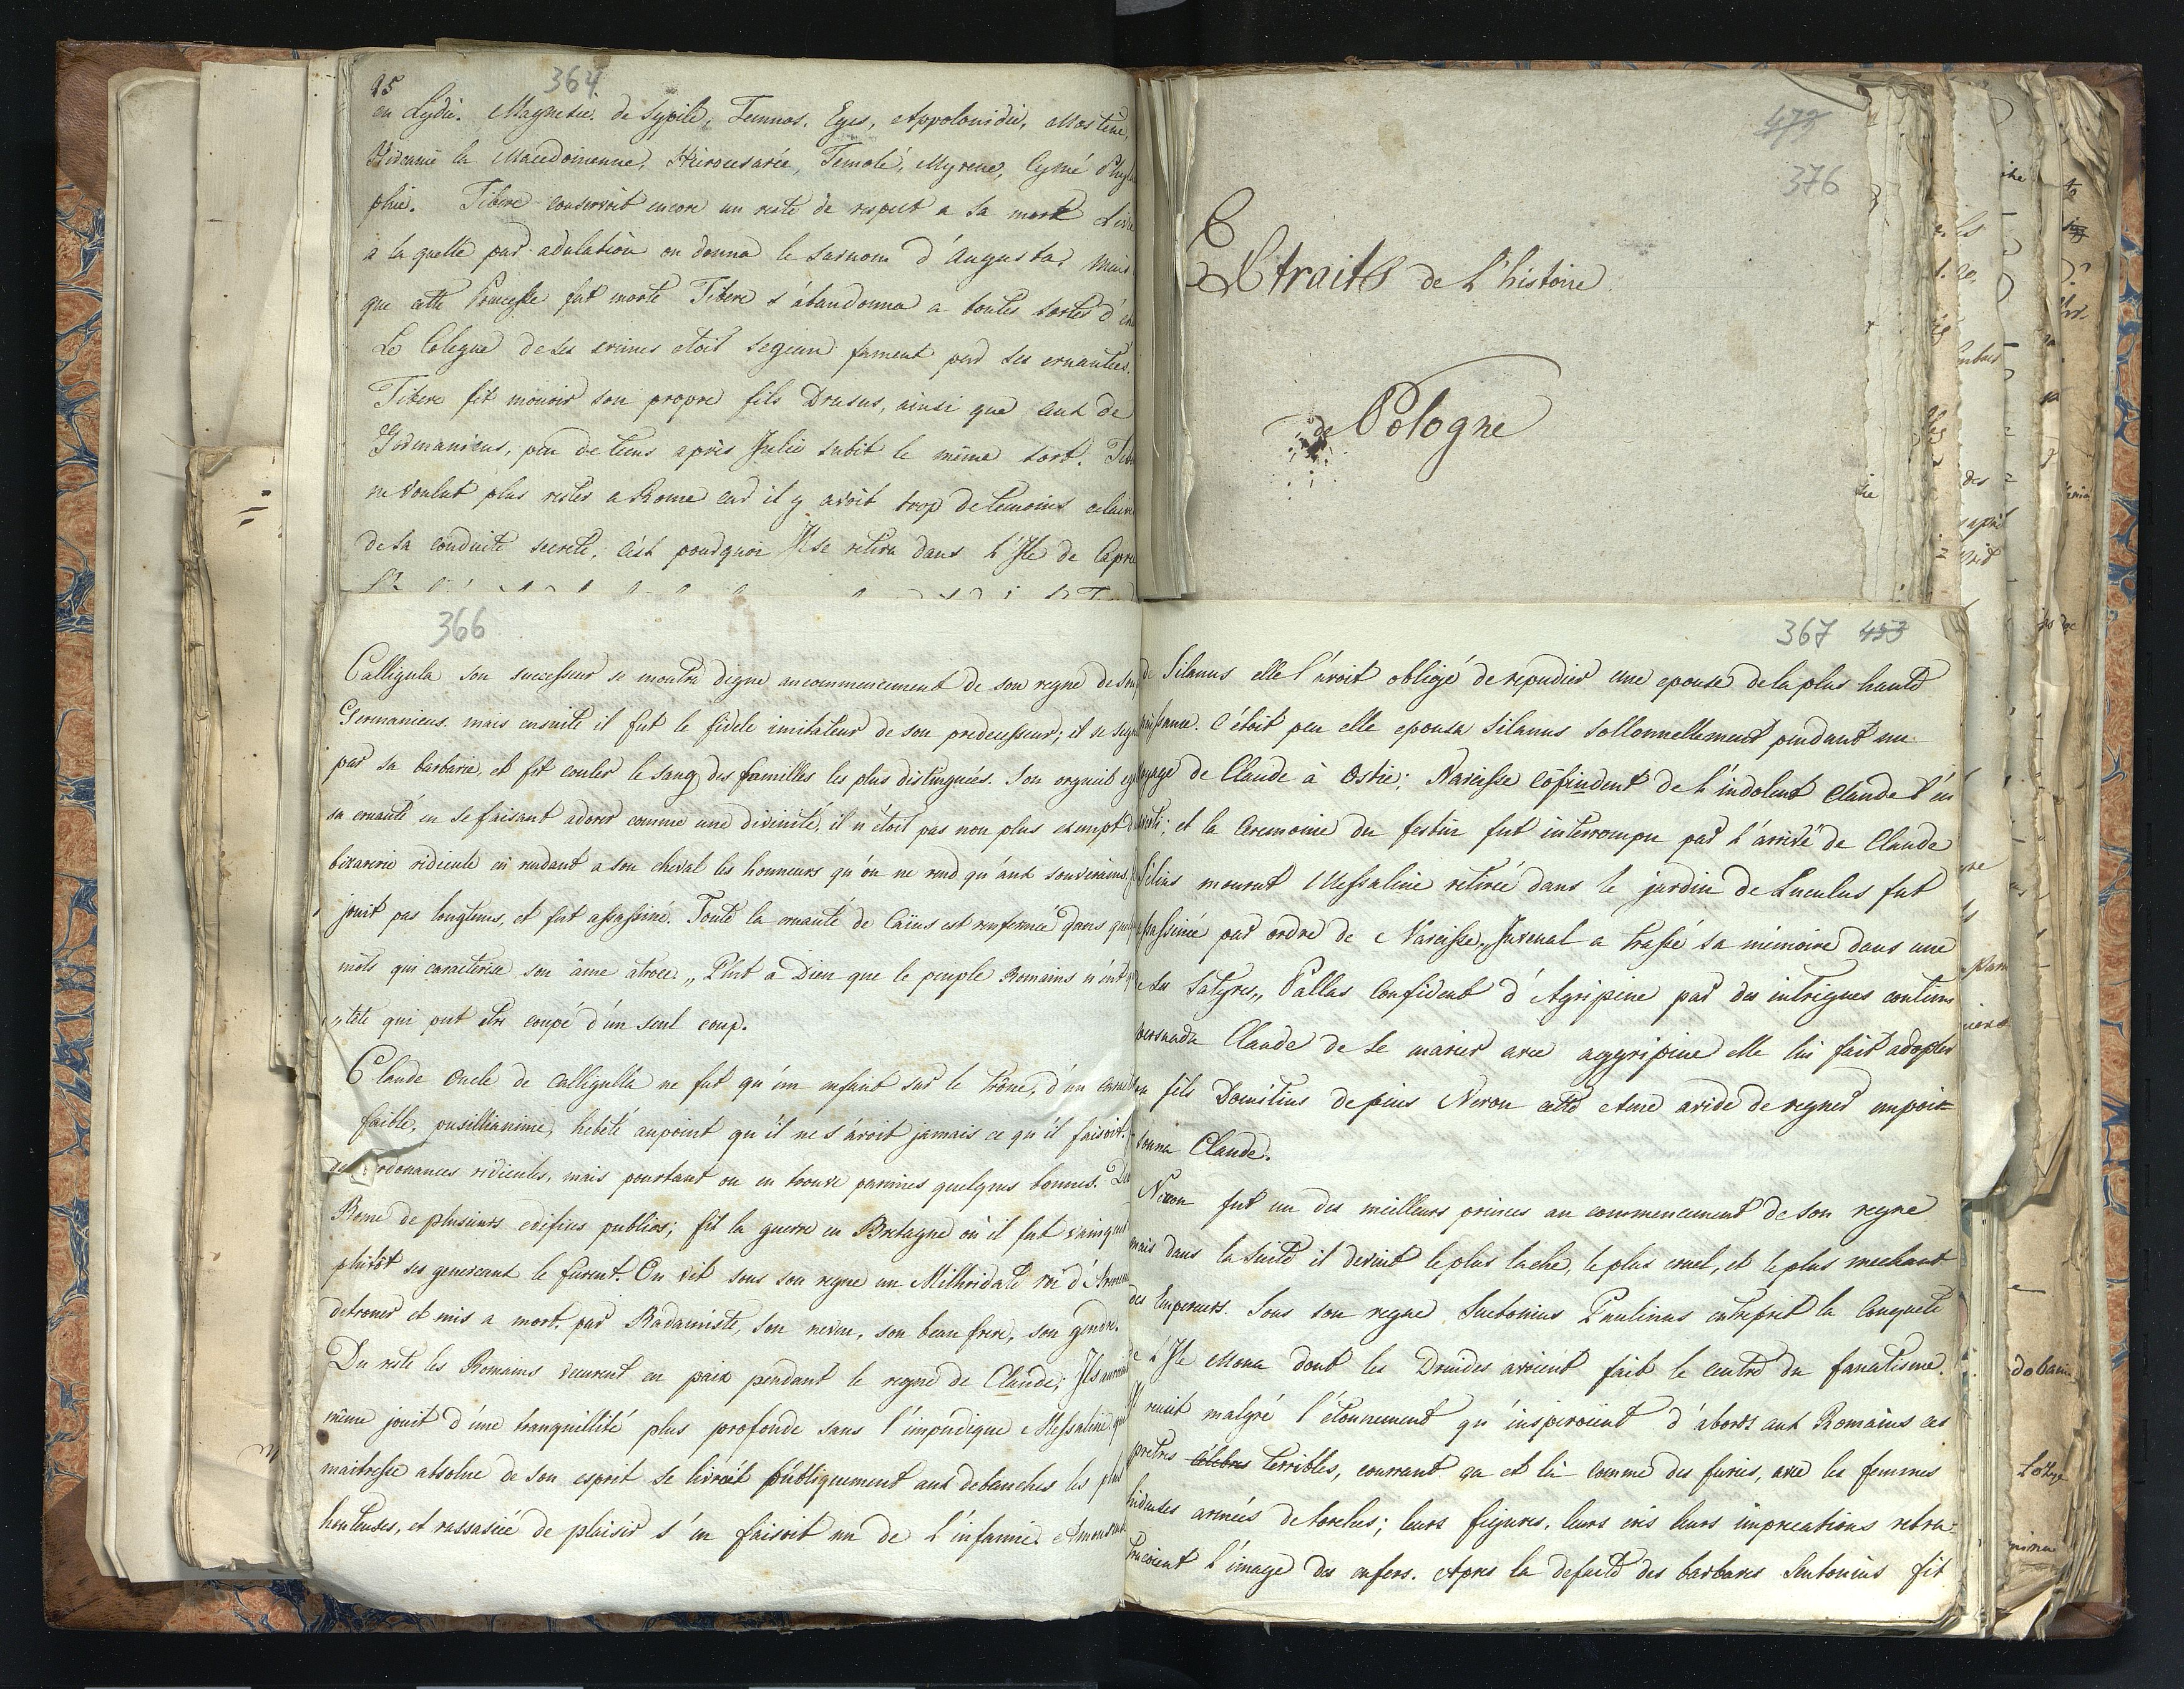 15
364
en Lydie. Magnesie de Sypile, Temnos. Eges, Appolonidie, Mostene,
Hircanie la Macedonienne, Hierocesarée, Temole, Myrene, Cymé
phie. Tibere conservoit encore un reste de respect a sa mort Livie
à la quelle par adulation on donna le surnom d'Augusta, mais
que cette Princesse fut morte Tibere s'abandonna a toutes sortes d'
Le Colegue de ses crimes etoit Segean fament par ses cruautées.
Tibere fit mourir son propre fils Drusus, ainsi que ceux de
Germanicus, peu de tems après Julie subit le même sort.
ne voulut plus rester a Rome car il y avoit trop de temoins
de sa conduite secrete, c'est pourquoi Il se retira dans L'Ile de
479
376
Extraits de L'histoire
de Pologne
366
Calligula son successeur se montra digne aucommencement de son regne de
Germanicus. mais ensuite il fut le fidele imitateur de son predecesseur; il se
par sa barbarie, et fit couler le sang des familles les plus distinguées. Son orgueil
sa cruauté en se faisant adorer comme une divinité, il n'étoit pas non plus exempt
bizarerie ridicule en rendant a son cheval les honneurs qu'on ne rend qu'aux souverains.
jouit pas longtems, et fut assassiné. Toute la cruauté de Caïus est renfermée dans
mots qui caracterise son âme atroce. „ Plut a Dieu que le peuple Romains n'eut
„ tête qui put être coupé d'un seul coup.
Claude Oncle de Calligulla ne fut qu'un enfant sur le trône, d'un
faible, pusillianime, hebété aupoint qu'il ne s'avoit jamais ce qu'il faisoit.
ordonances ridicules, mais pourtant on en trouve parmies quelques bonnes.
Rome de plusieurs edifices publics; fit la guerre en Bretagne où il fut
plûtôt ses genereaux le furent. On vit sous son regne un Mithridate roi d'
detroner et mis a mort, par Radamiste, son neveu, son beau frere, son gendre.
Du reste les Romains vecurent en paix pendant le regne de Claude; Ils
même jouit d'une tranquillité plus profonde sans l'impudique Messaline
maitresse absolue de son esprit se livroit publiquement aux debauches les plus
honteuses, et rassasiée de plaisir s'en faisoit un de L'infamie.
367 453
de Silanus elle l'avoit obligé de repudier une epouse de la plus haute
naissance. C'étoit peu elle epousa Silanus sollonnellement pendant un
voyage de Claude à Ostie; Narcisse cofindent de L'indolent Claude l'en
et la Ceremonie du festin fut interrompu par L'arrivé de Claude
Silius mourut Messaline retirée dans le jardin de Luculus fut
assassinée par ordre de Narcisse. „ Juvenal a trassé sa mémoire dans une
de ses Satyres„ Pallas Confident d'Agripine par des intrigues
persuada Claude de se marier avec aggripine elle lui fait adopter
son fils Domitius depuis Neron cette Ame avide de regner empoi-
sonna Claude.
Neron fut un des meilleurs princes au commencement de son regne
mais dans la suite il devint le plus lache, le plus cruel, et le plus mechant
des Empereurs. Sous son regne Suetonius Paulinus entreprit la Conquete
de L'Ile Mona dont les Druides avoient fait le centre du fanatisme.
Il malgré l'étonnement qu'inspiroient d'abord aux Romains ces
prêtres célebres terribles, courrant ça et là comme des furies, avec les femmes
hideuses armées de torches; leurs figures, leurs cris leurs imprecations retra-
L'image des enfers. Apres la defaite des barbares Suetonius fit